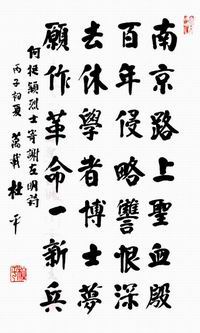 南京路上聖血殷
百年侵略讐恨深
去休學者博士夢
願作革命一新兵
何挺穎烈士寄謝左明詩
丙子初夏 萬載 杜平